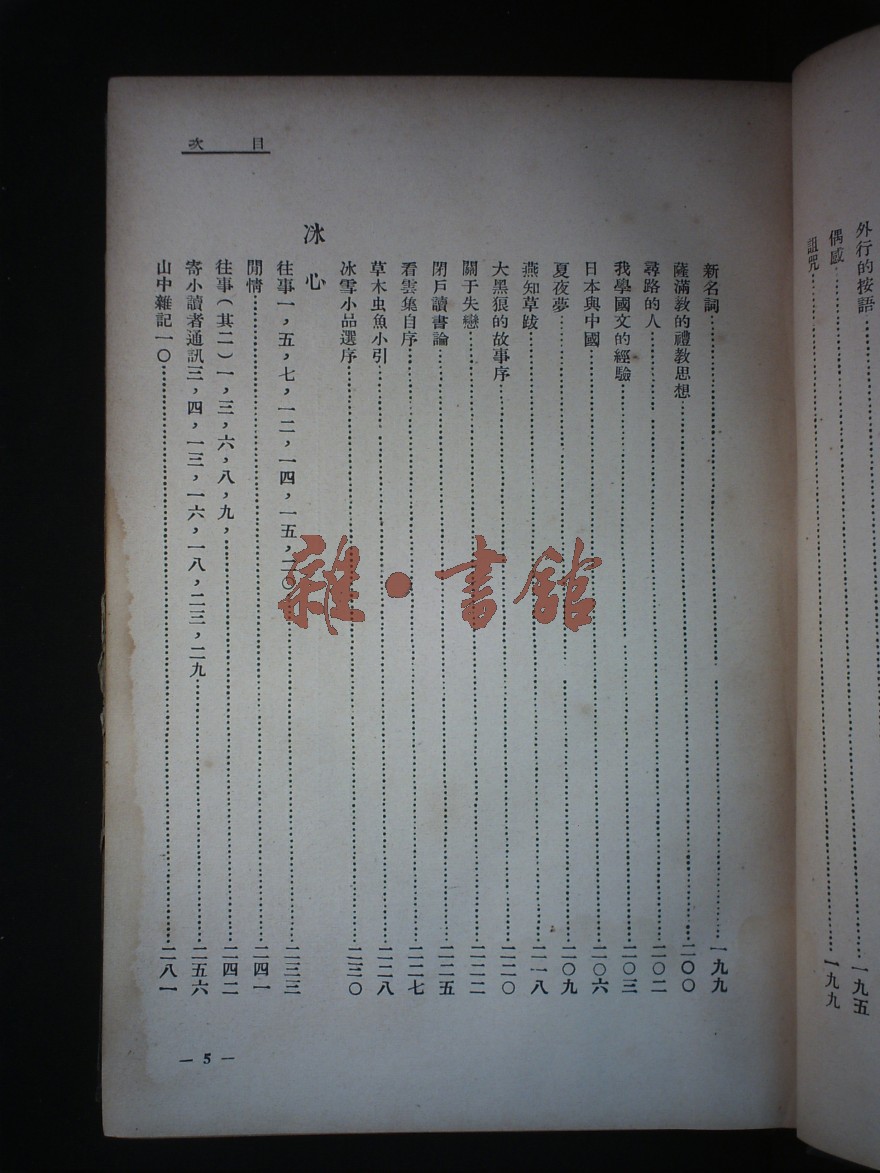 外行的按語……一九五
偶感
詛咒……一九九
目 次
新名詞……一九九
薩滿教的禮教思想……二〇〇
尋路的人……二〇二
我學國文的經驗……二〇三
日本與中國……二〇六
夏夜夢……二〇九
燕知草跋……二一八
大黑狼的故事序……二二〇
關于失戀……二二二
閉戶讀書論……二二五
看雲集自序……二二七
草木虫魚小引……二二八
冰雪小品選序……二三〇
冰心
往事一，五，七，一二，一四，一五，二〇……二三三
閒情……二四一
往事(其二)一，三，六，八，九，……二四二
寄小讀者通訊三，四，一三，一六，一八，二三，二九……二五六
山中雜記一〇……二八一
— 5 —
雜·書館